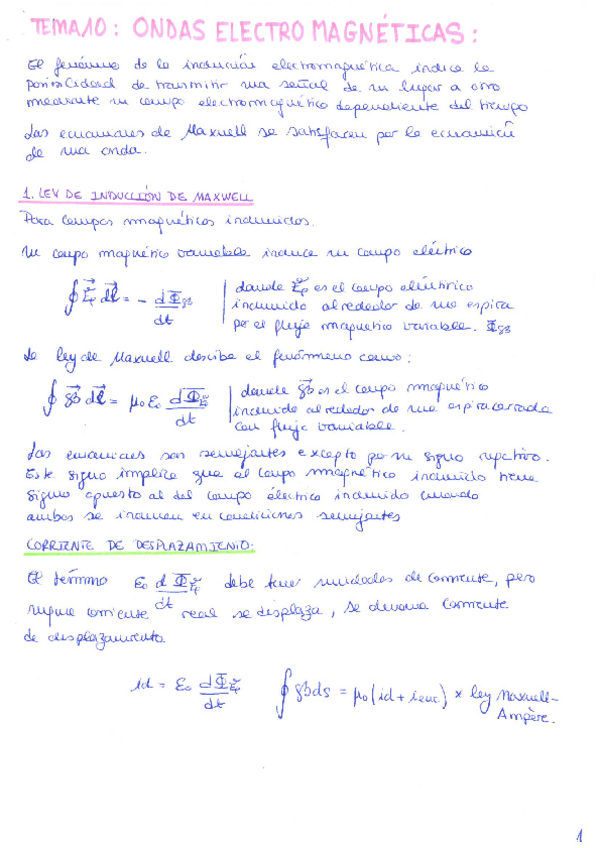 TEMA 10: ONDAS ELECTRO MAGNÉTICAS:
El fenómeno de la inducción electromagnética indica la
posibilidad de transmitir una señal de un lugar a otro
mediante un campo electromagnético dependiente del tiempo
Las ecuaciones de Maxwell se satisfacen por la ecuación
de una onda.
1. LEY DE INDUCCIÓN DE MAXWELL
Para campos magnéticos inducidos.
Un campo magnético variable induce un campo eléctrico
∮ E⃗ dl⃗ = - dΦB/dt | donde E⃗ es el campo eléctrico
inducido alrededor de una espira
por el flujo magnético variable. ΦB
La ley de Maxwell describe el fenómeno como:
∮ B⃗ dl⃗ = μ0 ε0 dΦE/dt | donde B es el campo magnético
inducido alrededor de una espira cerrada
con flujo variable.
Las ecuaciones son semejantes excepto por su signo negativo.
Este signo implica que el campo magnético inducido tiene
signo opuesto al del campo eléctrico inducido cuando
ambos se inducen en condiciones semejantes
CORRIENTE DE DESPLAZAMIENTO:
El término ε0 dΦE/dt debe tener unidades de corriente, pero
ninguna corriente real se desplaza, se denomina corriente
de desplazamiento.
id = ε0 dΦE/dt ∮ B ds = μ0 (id + ienc) * ley Maxwell-
Ampère.
1